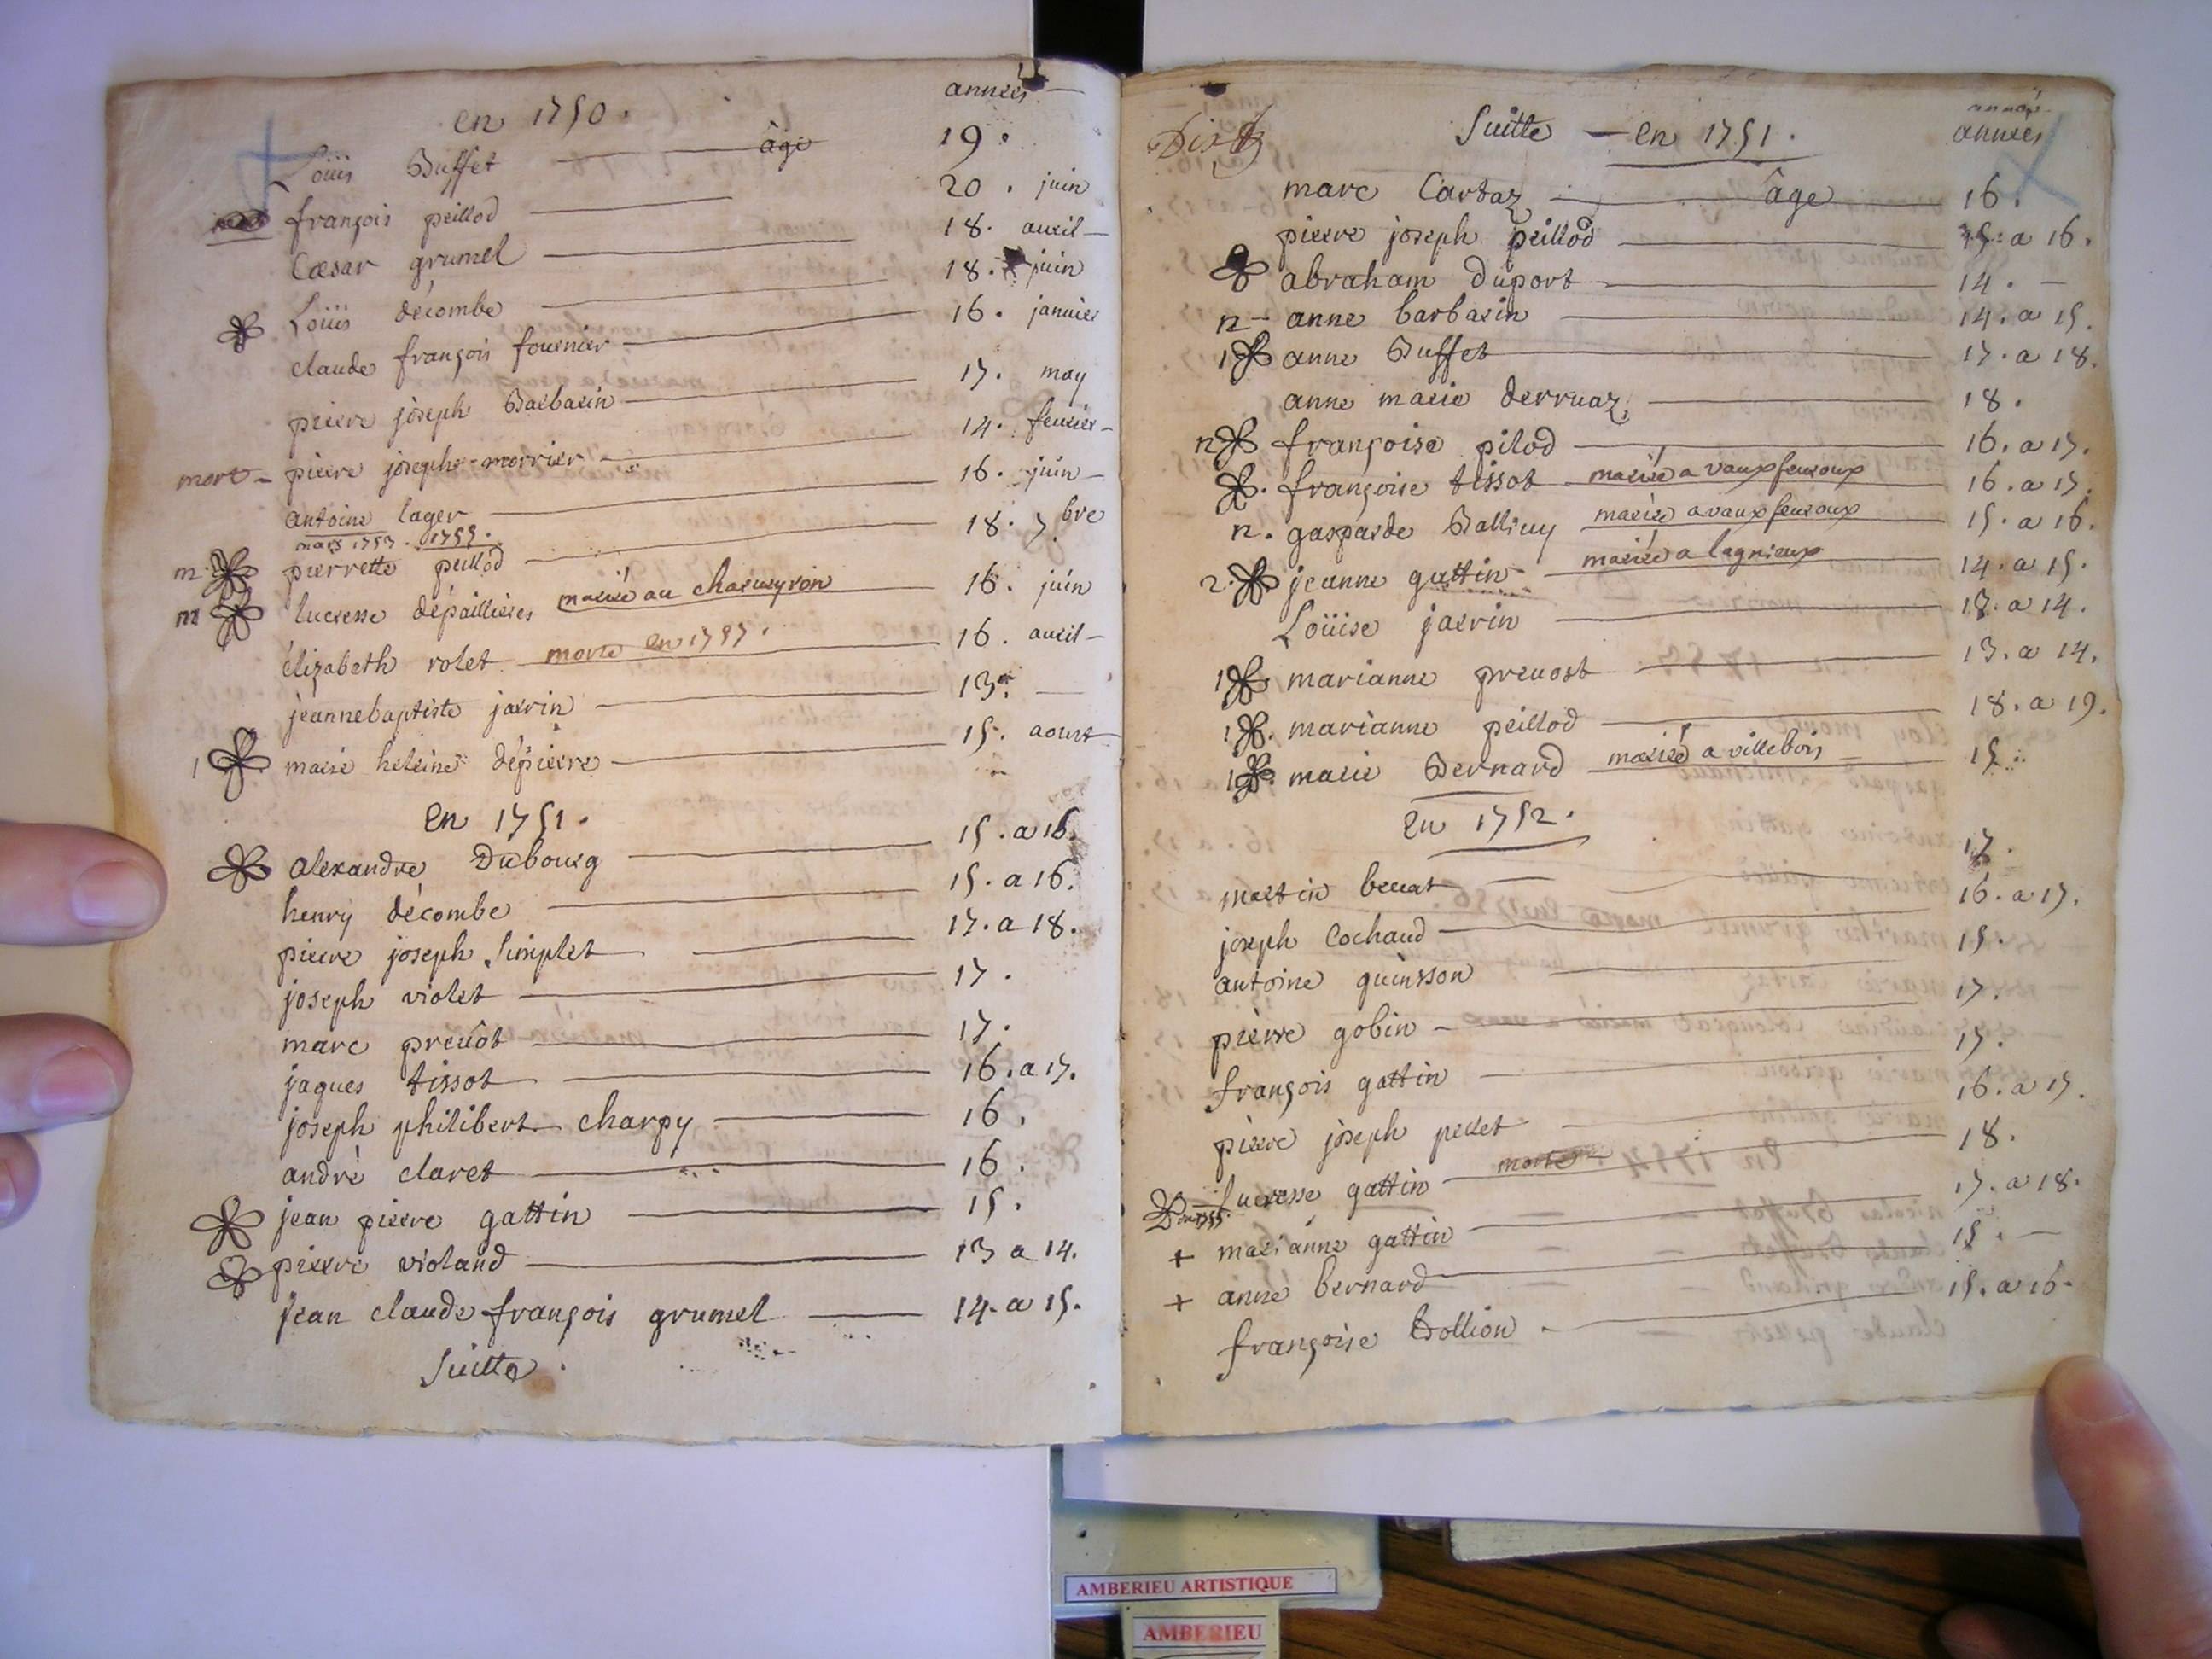 années —
en 1750.
Loüis Buffet — âge 19.
françois peillod — 20. juin
Cæsar grumel — 18. auril —
Loüis décombe — 18. juin
claude françois fournier — 16. januier
pierre joseph Barbarin — 17. may
mort — pierre joseph morrier — 14. feurier —
antoine lager — 16. juin —
mars 1753. 1755.
m. pierrette peillod — 18. 7.bre
m lucresse dépaillieres marié au charueyron 16. juin
élizabeth rolet morte en 1757. 16. auril —
jeannebaptiste jarrin — 13. —
1 marie heleine dépierre — 15. aoust
En 1751.
alexandre Dubourg — 15. a 16.
henry décombe — 15. a 16.
pierre joseph Simplet — 17. a 18.
joseph violet — 17.
marc preuôt — 17.
jaques tissot — 16. a 17.
joseph philibert charpy — 16.
andrè claret — 16.
jean pierre gattin — 15.
pierre violand — 13 a 14.
jean claude françois grumel — 14. a 15.
Suitte.
Suitte — en 1751.
années
marc Cartaz — âge 16.
pierre joseph peillod — 15. a 16.
abraham duport — 14. —
n — anne barbarin — 14. a 15.
1 anne Buffet — 17. a 18.
anne marie derruaz — 18.
n françoise pilod — 16. a 17.
françoise tissot marié a vaux feuroux 16. a 17.
n. gasparde Balliuy marié a vaux feuroux 15. a 16.
2. jeanne gattin — marié a lagnieux 14. a 15.
Loüise jarrin — 13. a 14.
1 marianne preuost — 13. a 14.
1 marianne peillod — 18. a 19.
1 marie Bernard marié a villebois — 15.
En 1752.
martin beuat — 17.
joseph Cochaud — 16. a 17.
antoine quinsson — 15.
pierre gobin — 17.
françois gattin — 17.
pierre joseph pellet — 16. a 17.
lucresse gattin — morte — 18.
+ marianne gattin — 17. a 18.
+ anne bernard — 15. —
françoise Bollion — 15. a 16.
AMBERIEU ARTISTIQUE
AMBERIEU